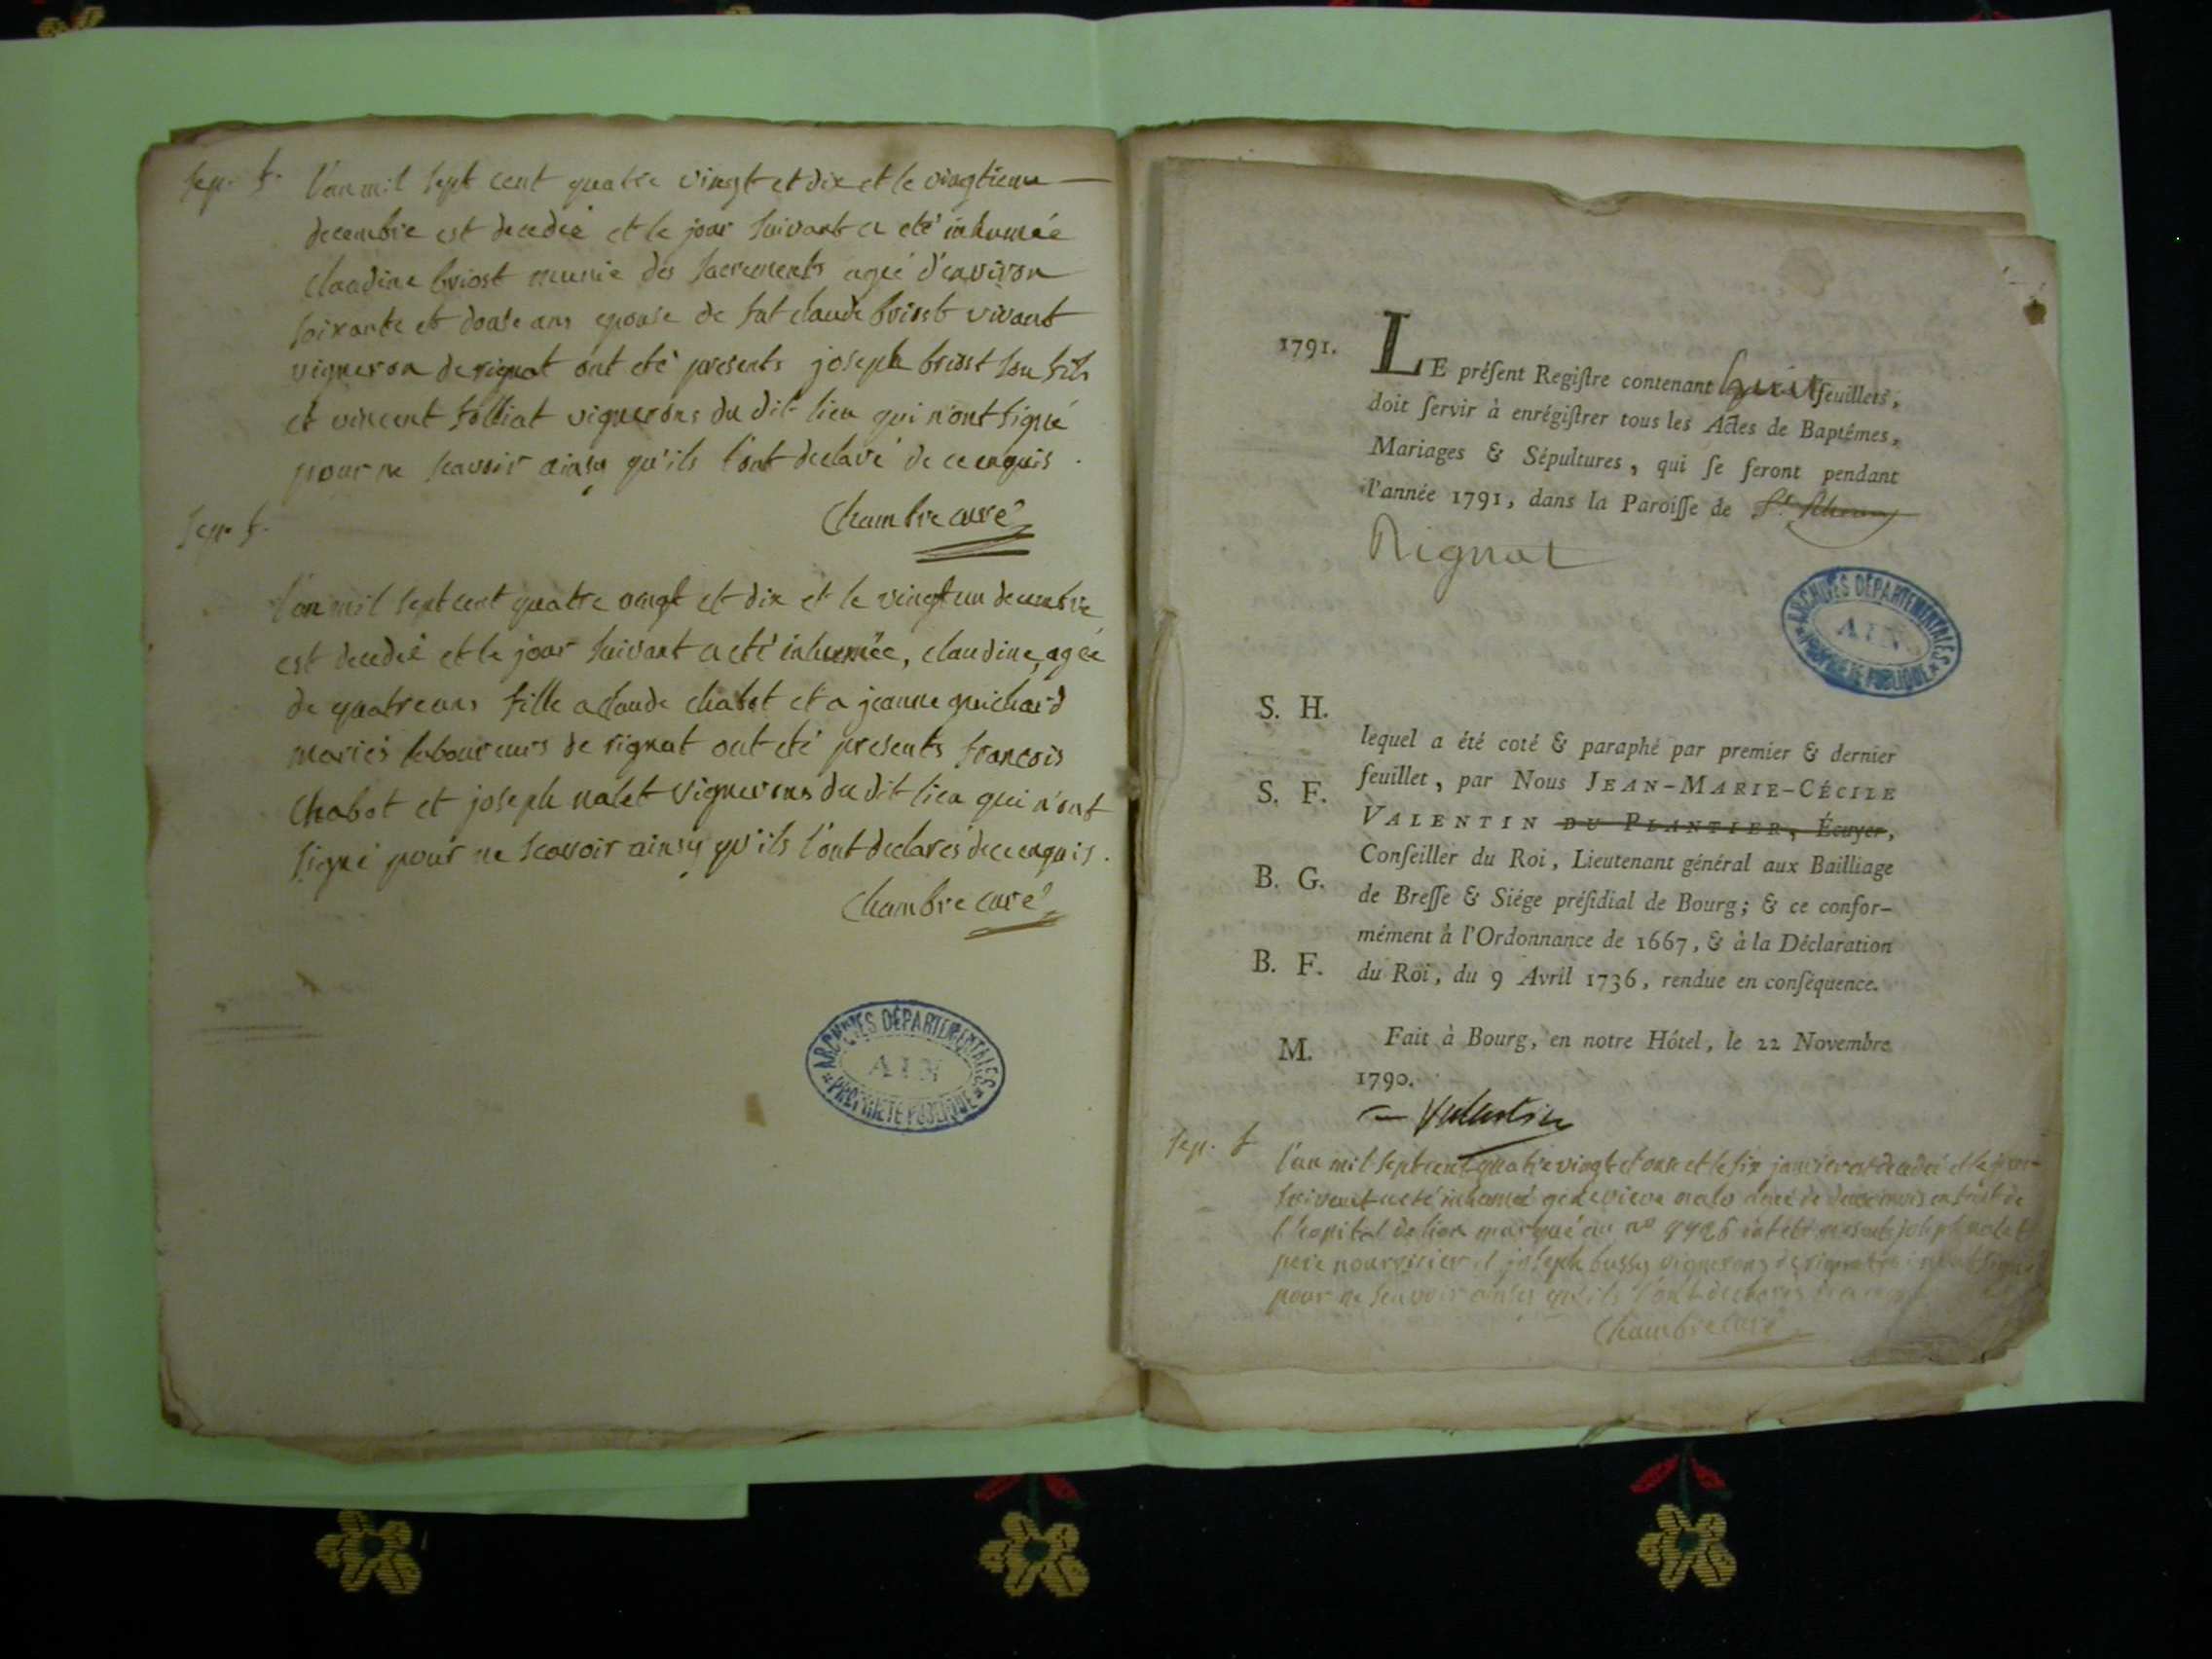 Sep. f.
l'an mil sept cent quatre vingt et dix et le vingtieme
decembre est decedée et le jour suivant a eté inhumée
claudine briost munie des sacrements agée d'environ
soixante et douse ans epouse de fut claude briost vivant
vigneron de rignat ont eté presents joseph briost son fils
et vincent folliat vignerons du dit lieu qui n'ont signé
pour ne scavoir ainsy qu'ils l'ont declaré de ce enquis.
Chambre curé
Sep. f.
l'an mil sept cent quatre vingt et dix et le vingt un decembre
est decedée et le jour suivant a eté inhumée, claudine, agée
de quatre ans fille a claude chabot et a jeanne guichard
mariés laboureurs de rignat ont eté presents francois
Chabot et joseph nalet vignerons du dit lieu qui n'ont
signé pour ne scavoir ainsy qu'ils l'ont declarés de ce enquis.
Chambre curé
ARCHIVES DÉPARTEMENTALES
AIN
PROPRIÉTÉ PUBLIQUE
1791.
LE préſent Regiſtre contenant huit feuillets,
doit ſervir à enrégiſtrer tous les Actes de Baptêmes,
Mariages & Sépultures, qui ſe ſeront pendant
l'année 1791, dans la Paroiſſe de St.
Rignat
ARCHIVES DÉPARTEMENTALES
AIN
PROPRIÉTÉ PUBLIQUE
S. H.
lequel a été coté & paraphé par premier & dernier
feuillet, par Nous JEAN-MARIE-CÉCILE
S. F.
VALENTIN DU PLANTIER, Écuyer,
Conſeiller du Roi, Lieutenant général aux Bailliage
B. G.
de Breſſe & Siége préſidial de Bourg; & ce confor-
mément à l'Ordonnance de 1667, & à la Déclaration
B. F.
du Roi, du 9 Avril 1736, rendue en conſéquence.
M.
Fait à Bourg, en notre Hôtel, le 22 Novembre
1790.
Valentin
Sep. f
l'an mil sept cent quatre vingt et onse et le six janvier est decedée et le jour
suivant a eté inhumée genevieve agée de mois enfant de
l'hopital de lion marqué au no ont eté presents joseph nalet
pere nourricier et joseph bussy vignerons de rignat qui n'ont signé
pour ne scavoir ainsy qu'ils l'ont declarés
Chambre curé